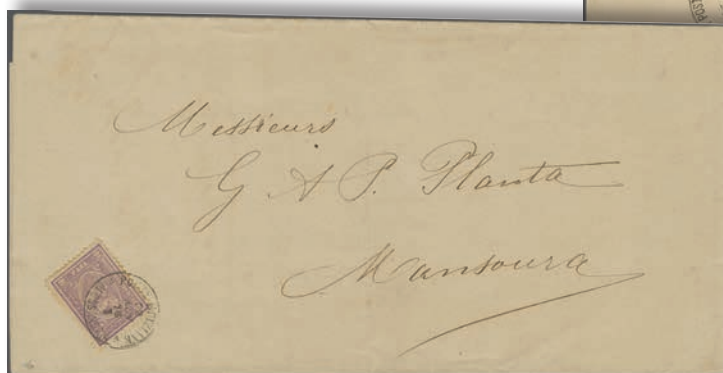 Messieurs
G A P. Planta
Mansoura